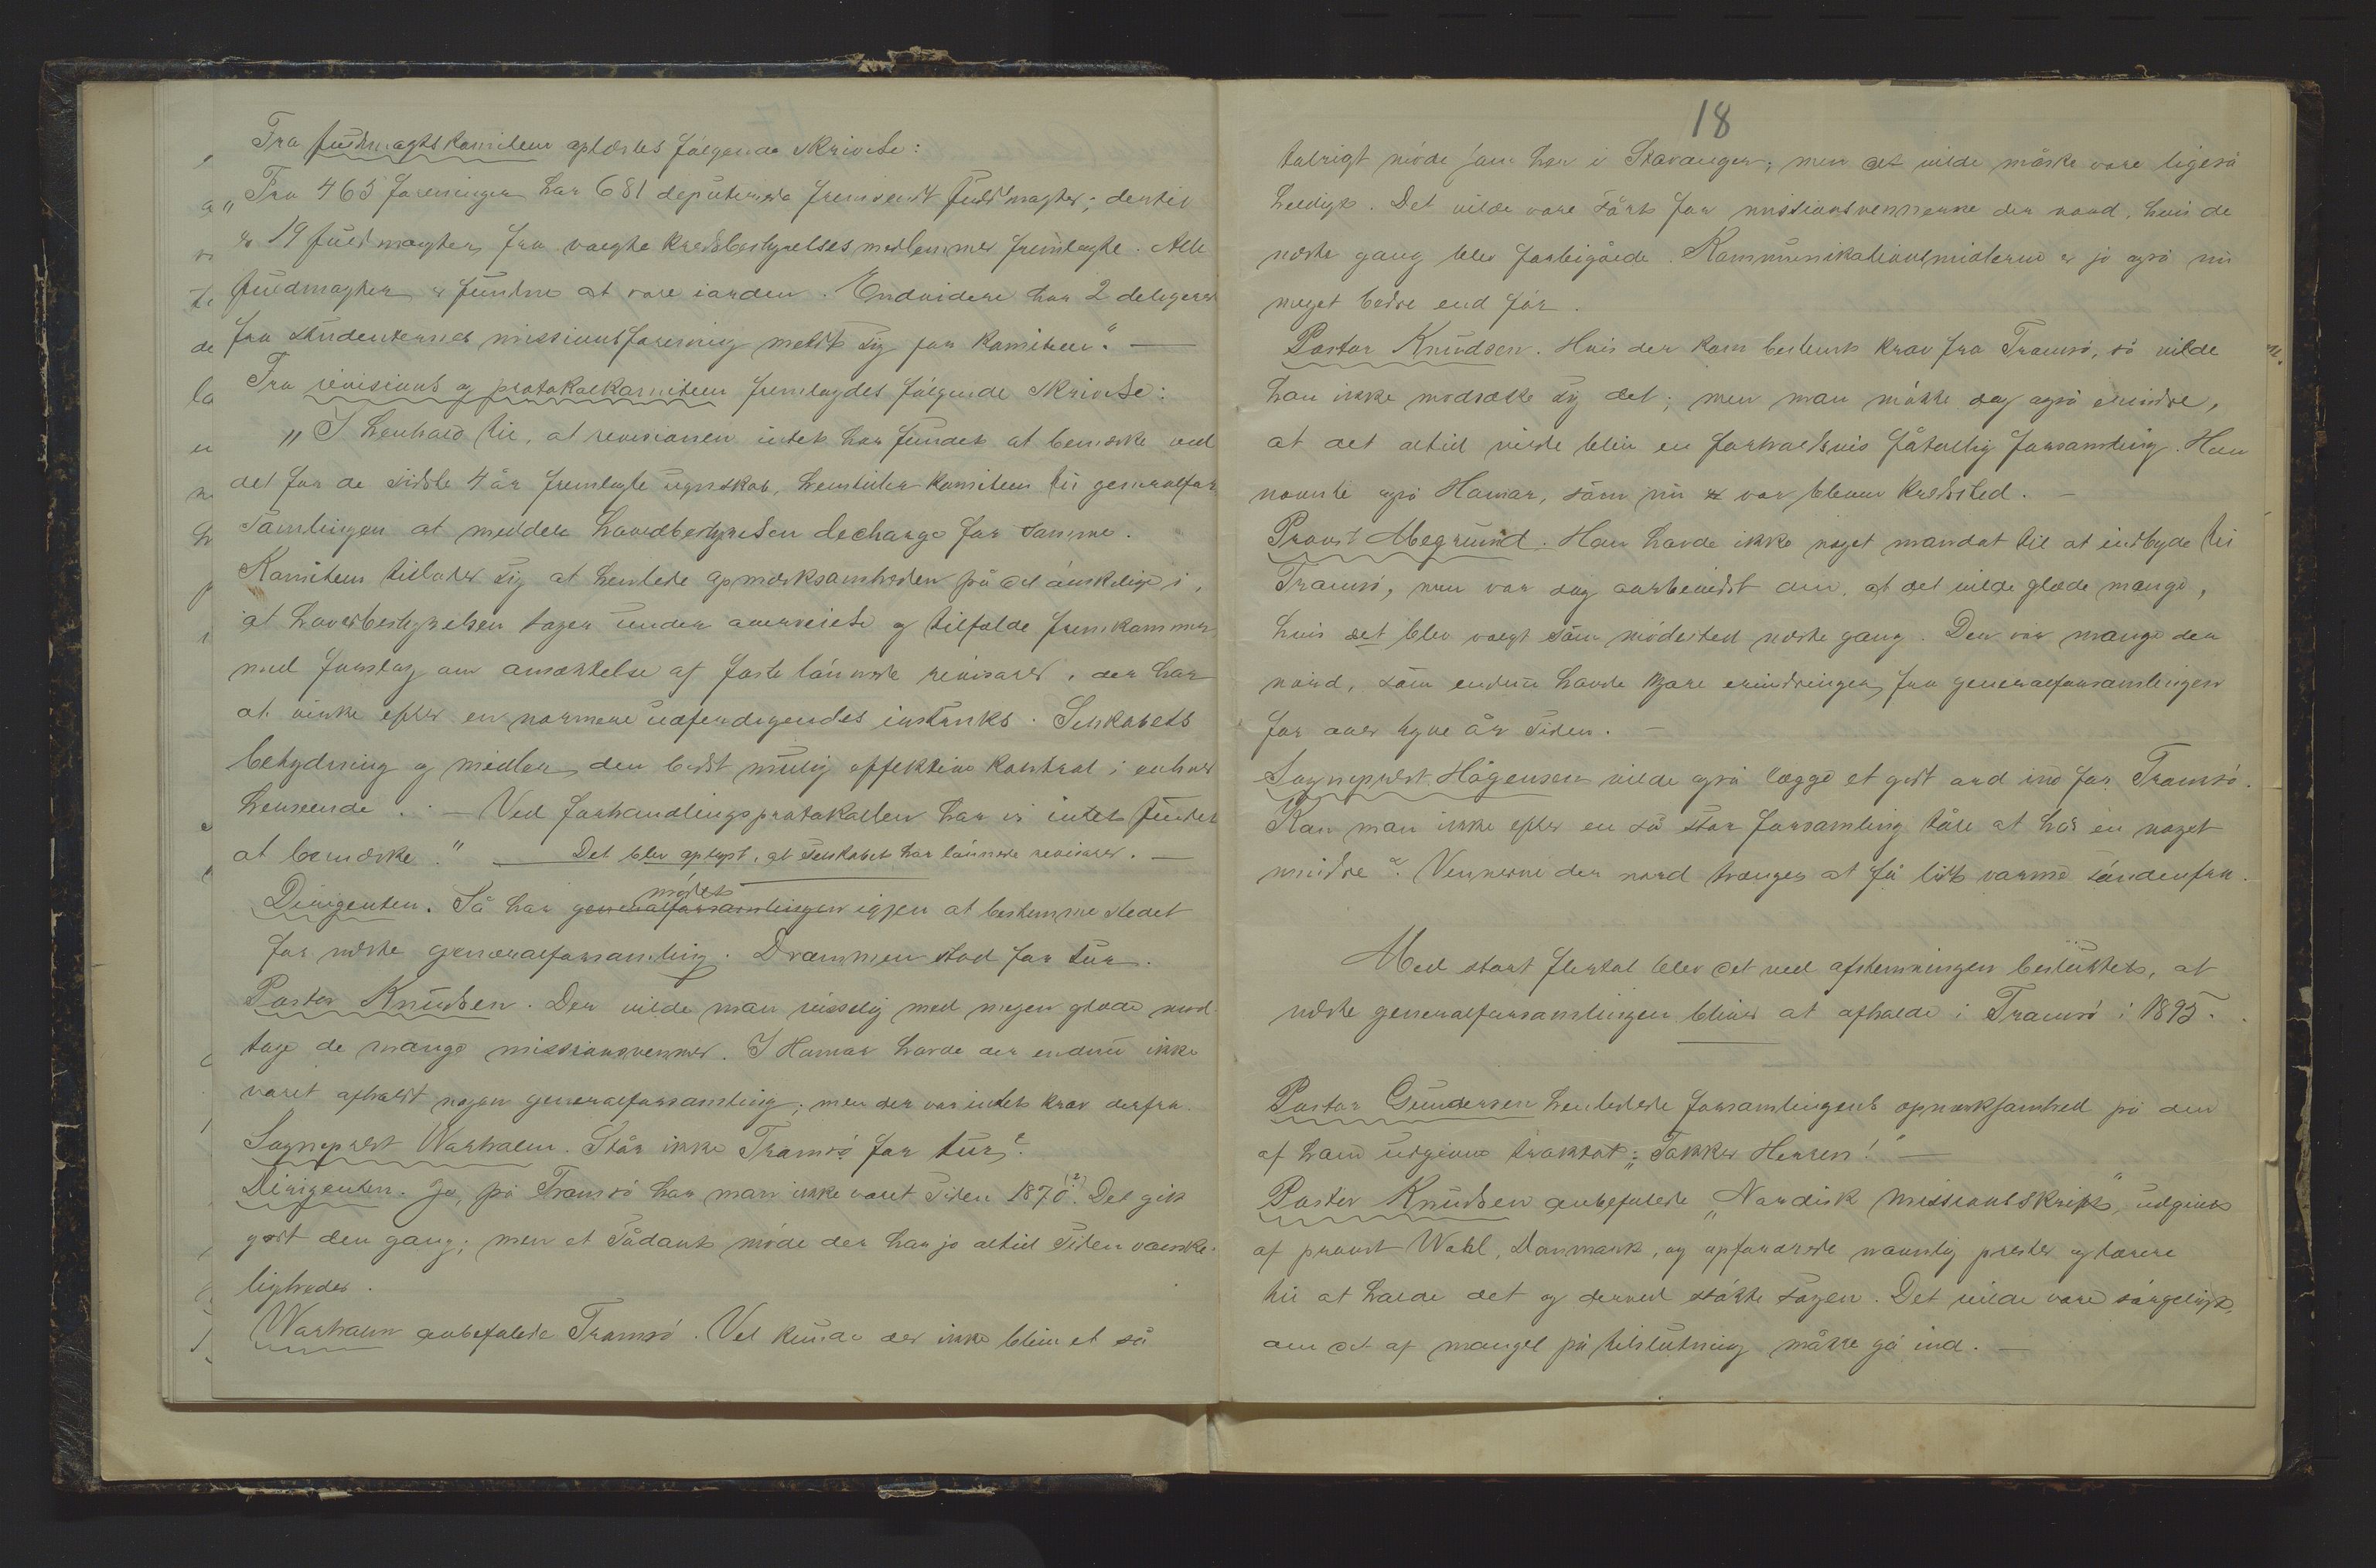 Fra fuldmagtskomiteen oplæstes følgende skrivelse:
„Fra 463 foreninger har 681 deputerede fremsendt fuldmagter; dertil
er 19 fuldmagter fra valgte kredsbestyrelsesmedlemmer fremlagte. Alle
fuldmagter er fundne at være iorden. Endvidere har 2 delegerede
fra studenternes missionsforening meldt sig for komiteen." —
Fra revisions og protokolkomiteen fremlagdes følgende skrivelse:
„I henhold til, at revisionen intet har fundet at bemærke ved
det for de sidste 4 år fremlagte regnskab, henstiller komiteen til generalfor
samlingen at meddele hovedbestyrelsen decharge for samme.
Komiteen tillader sig at henlede opmærksomheden på det ønskelige i,
at hovedbestyrelsen tager under overveielse og tilfælde fremkommer
med forslag om ansættelse af faste lønnede revisorer, der har
at virke efter en nærmere udfærdigendes instruks. Selskabets
betydning og midler den bedst mulig effektive kontrol i enhver
henseende. — Ved forhandlingsprotokollen har vi intet fundet
at bemærke." — Det blev oplyst, at selskabet har lønnede revisorer. —
Dirigenten. Så har generalforsamlingen mødet igjen at bestemme stedet
for næste generalforsamling. Drammen stod for tur.
Pastor Knudsen. Der vilde man visselig med megen glæde mod
tage de mange missionsvenner. I Hamar havde der endnu ikke
været afholdt nogen generalforsamling; men der var intet krav derfra.
Sogneprest Warholm. Står ikke Tromsø for tur?
Dirigenten. Jo, på Tromsø har man ikke været siden 1870(?). Det gik
godt den gang; men et sådant møde der har jo altid siden vanske-
ligheder.
Warholm anbefalede Tromsø. Vel kunde der ikke blive et så
18
talrigt møde som her i Stavanger; men det vilde måske være ligeså
heldigt. Det vilde være sårt for missionsvennerne der nord, hvis de
næste gang blev forbigåede. Kommunikationsmidlerne er jo også nu
meget bedre end før.
Pastor Knudsen. Hvis der kom bestemt krav fra Tromsø, så vilde
han ikke modsætte sig det; men man måtte dog også erindre,
at det altid vilde blive en forholdsvis fåtallig forsamling. Han
nævnte også Hamar, som nu var bleven kredssted. —
Provst Abegrund. Han havde ikke noget mandat til at indbyde til
Tromsø, men var dog overbevist om, at det vilde glæde mange,
hvis det blev valgt som mødested næste gang. Der var mange der
nord, som endnu havde kjære erindringer fra generalforsamlingen
for over tyve år siden. —
Sogneprest Hågensen vilde også lægge et godt ord ind for Tromsø.
Kan man ikke efter en så stor forsamling tåle at have en noget
mindre? Vennerne der nord trænger at få lidt varme søndenfra.
Med stort flertal blev det ved afstemningen besluttet, at
næste generalforsamlingen bliver at afholde i Tromsø i 1895.
Pastor Gundersen henledede forsamlingens opmærksomhed på den
af ham udgivne traktat: „Takker Herren!" —
Pastor Knudsen anbefalede „Nordisk Missionsskrift", udgivet
af provst Wahl, Danmark, og opfordrede navnlig prester og lærere
til at holde det og derved støtte sagen. Det vilde være sørgeligt,
om det af mangel på tilslutning måtte gå ind. —